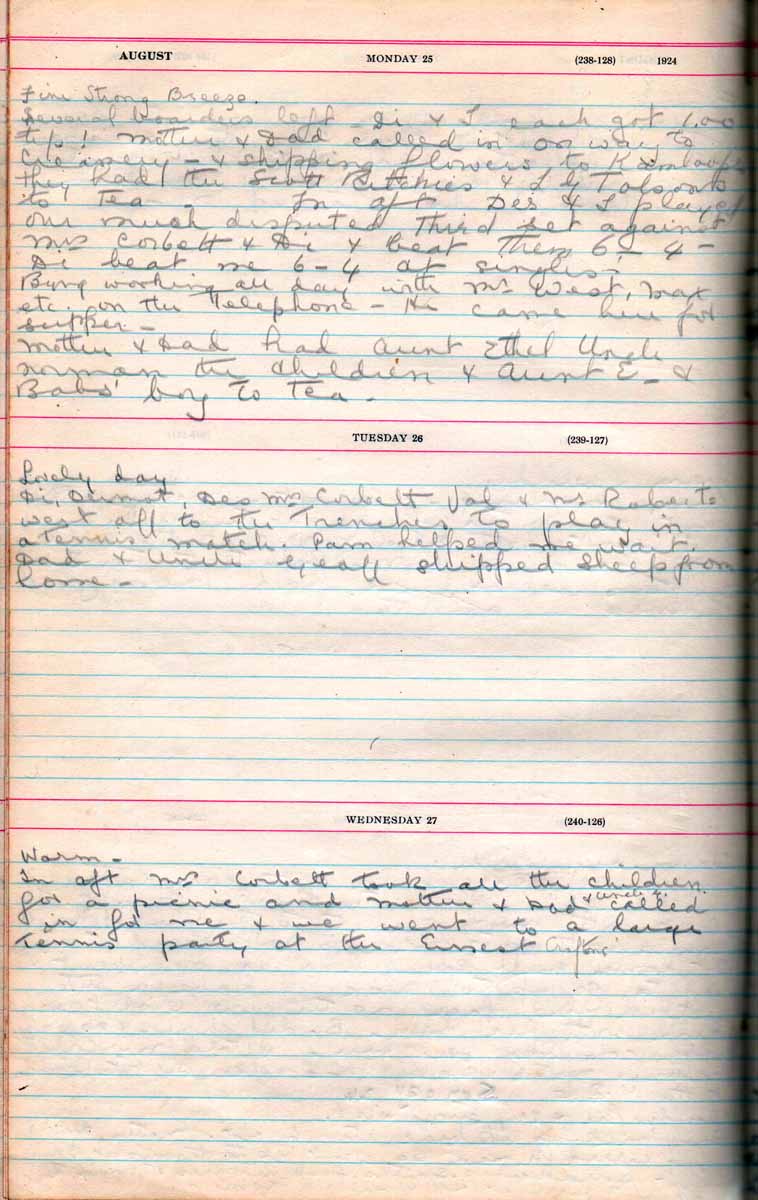 AUGUST MONDAY 25 (238-128) 1924
Fine Strong Breeze.
Several boarders left - Di & I each got 1.00
tip! Mother & Dad called in on way to
Creamery - & shipping flowers to Kamloops
they had the Scott Ritchies &
to Tea. In aft Des & I played
our much disputed Third set against
Mrs Corbett & Di & beat them 6-4-
Di beat me 6-4 at singles-
Byng working all day with Mr West, Max
etc. on the Telephone - He came here for
supper-
Mother & Dad had Aunt Ethel Uncle
Norman the children & Aunt E- &
Babs' boy to Tea-
TUESDAY 26 (239-127)
Lovely day
Di, Dermot, Des Mrs Corbett Val & Mr Roberts
went off to the Trenches to play in
a Tennis match. Pam helped me wait.
Dad & Uncle Geoff shipped sheep from
home-
WEDNESDAY 27 (240-126)
Warm-
In aft Mrs Corbett took all the children
for a picnic and Mother & Dad & Uncle G. called
in for me & we went to a large
Tennis party at the Ernest